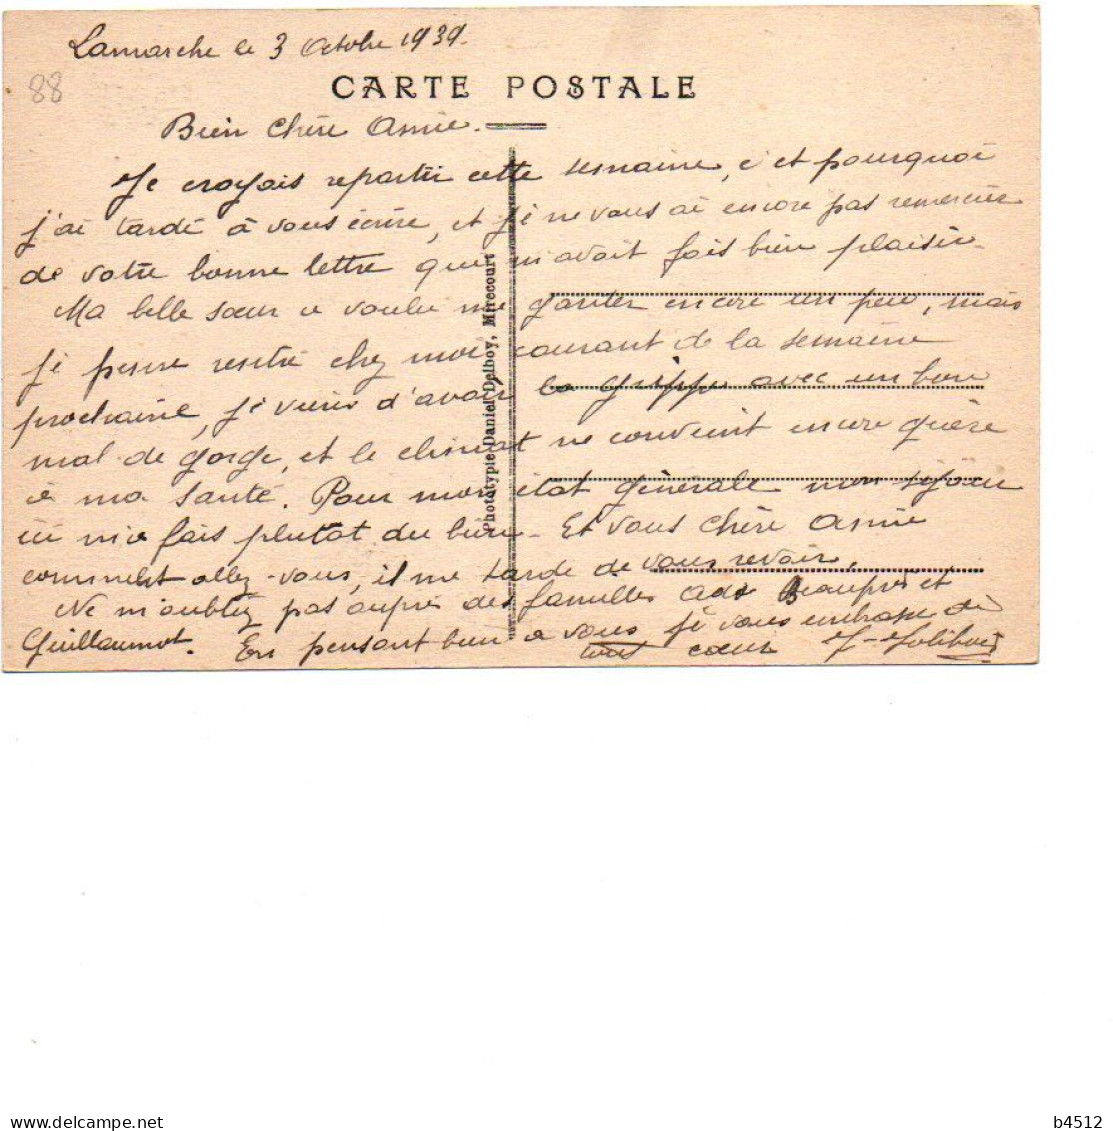 Lamarche le 3 Octobre 1939.
88
CARTE POSTALE
Bien Chère Amie.
Je croyais repartir cette semaine, c'et pourquoi
j'ai tardé à vous écrire, et je ne vous ai encore pas remercier
de votre bonne lettre qui m'avait fais bien plaisir.
Ma belle sœur a voulu me garder encore un peu, mais
je pense rentré chez moi courant de la semaine
prochaine, je viens d'avoir la grippe avec un bon
mal de gorge, et le climat ne convient encore guère
à ma santé. Pour mon état générale mon séjour
ici m'a fais plutot du bien. Et vous Chère Amie
comment allez-vous, il me tarde de vous revoir.
Ne m'oubliez pas auprès des familles Beaupré et
Guillaumot. En pensant bien a vous je vous embrasse de
tout cœur J-Jolibois
Phototypie Daniel Delboy, Mirecourt
delcampe.net
b4512